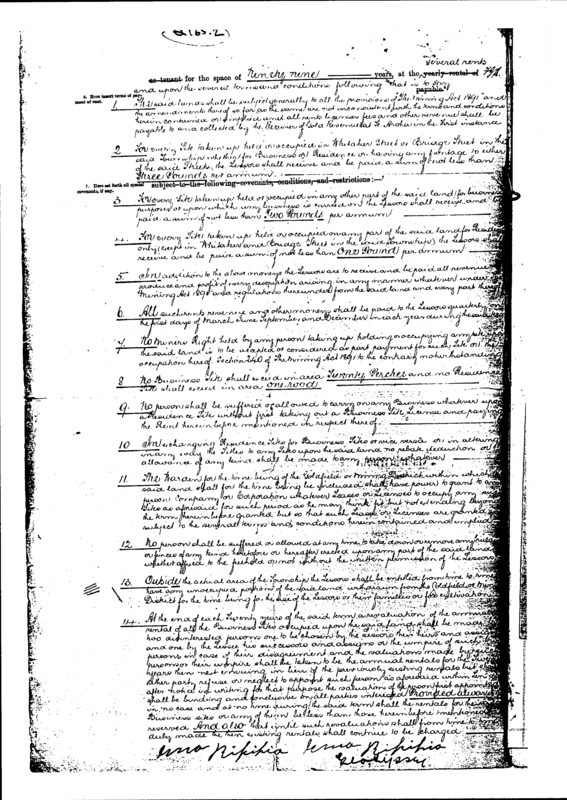 several rents
as tenant for the space of Ninety nine years, at the yearly rental of
and upon the several terms and conditions following that is to say
payable
6. Here insert terms of payment of rent.
1. The said lands shall be subject generally to all the provisions of The Mining Act 1891 and
the amendments thereof so far as the same are not inconsistent with the terms and conditions
herein contained or implied and all rents license fees and other revenue shall be
payable to and collected by the Receiver of Gold Revenue at Te Aroha in the first instance
2. For every Site taken up held or occupied in Whitaker Street or Bridge Street in the
said Township whether for Business or Residence or having any frontage to either
of the said Streets, the Lessors shall receive and be paid a sum of not less than
Three Pounds per annum.
7. Here set forth all special covenants, if any.
subject to the following covenants, conditions, and restrictions:—
3. For every Site taken up held or occupied in any other part of the said land for business
purposes or upon which any business is carried on the Lessors shall receive and be
paid a sum of not less than Two Pounds per annum
4. For every Site taken up held or occupied on any part of the said land for Residence
only (except in Whitaker and Bridge Street in the said Township) the Lessors shall
receive and be paid a sum of not less than One Pound per annum
5. In addition to the above moneys the Lessors are to receive and be paid all revenue
produce and profit of every description arising in any manner whatever under the
Mining Act 1891 and regulations thereunder from the said land and every part thereof
6. All such rents revenue and other moneys shall be paid to the Lessors quarterly on
the first days of March June September and December in each year during the said term
7. No Miners Right held by any person taking up holding or occupying any part of
the said land is to be accepted or considered as part payment for such Site or the
occupation hereof Section 240 of The Mining Act 1891 to the contrary notwithstanding
8. No Business Site shall exceed in area Twenty Perches and no Residence
Site shall exceed in area one rood
9. No person shall be suffered or allowed to carry on any Business whatever upon
a Residence Site without first taking out a Business Site License and paying
the Rent hereinbefore mentioned in respect thereof
10. In exchanging Residence Sites for Business Sites or vice versa or in altering
in any way the Titles to any Sites upon the said land no rebate deduction or
allowance of any kind shall be made to any person whatever
11. The Warden for the time being of the Goldfield or Mining District within which the
said land shall for the time being be included shall have power to grant to any
person Company or Corporation whatever Leases or Licenses to occupy any such
Sites as aforesaid for such period as he may think fit but not extending beyond
the term hereinbefore granted but so that such Leases or Licenses are granted
subject to the several terms and conditions herein contained and implied
12. No person shall be suffered or allowed at any time to take down or remove any building
or fences of any kind heretofore or hereafter erected upon any part of the said land
whether affixed to the freehold or not without the written permission of the Lessors
13. Outside the actual area of the Township the Lessors shall be entitled from time to time
have any unoccupied portions of the said land withdrawn from the Goldfield or Mining
District for the time being for the use of the Lessors or their families or for cultivation
14. At the end of each Twenty years of the said term a revaluation of the annual
rental of all the Business Sites occupied upon the said land shall be made by
two disinterested persons one to be chosen by the Lessors their heirs and assigns
and one by the Lessee his successors and assigns or the umpire of such
persons in case of their disagreement and the valuations made by such
persons or their umpire shall be taken to be the annual rentals for the Twenty
years then next ensuing in lieu of the previously existing rentals but if
either party refuse or neglect to appoint such person as aforesaid within
after notice in writing for that purpose the valuation of the person first appointed
shall be binding and conclusive on all parties interested Provided always
in no case and at no time during the said term shall the rentals for the
Business sites or any of them be less than those hereinbefore mentioned
reserved And also that until such revaluations shall from time to time
duly made the then existing rentals shall continue to be charged